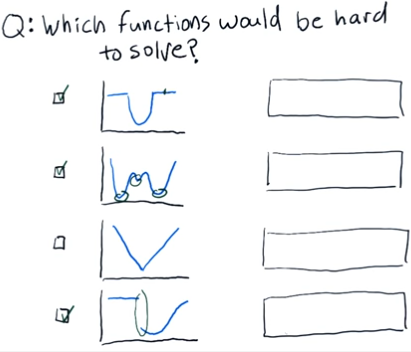 Q: Which functions would be hard
to solve?